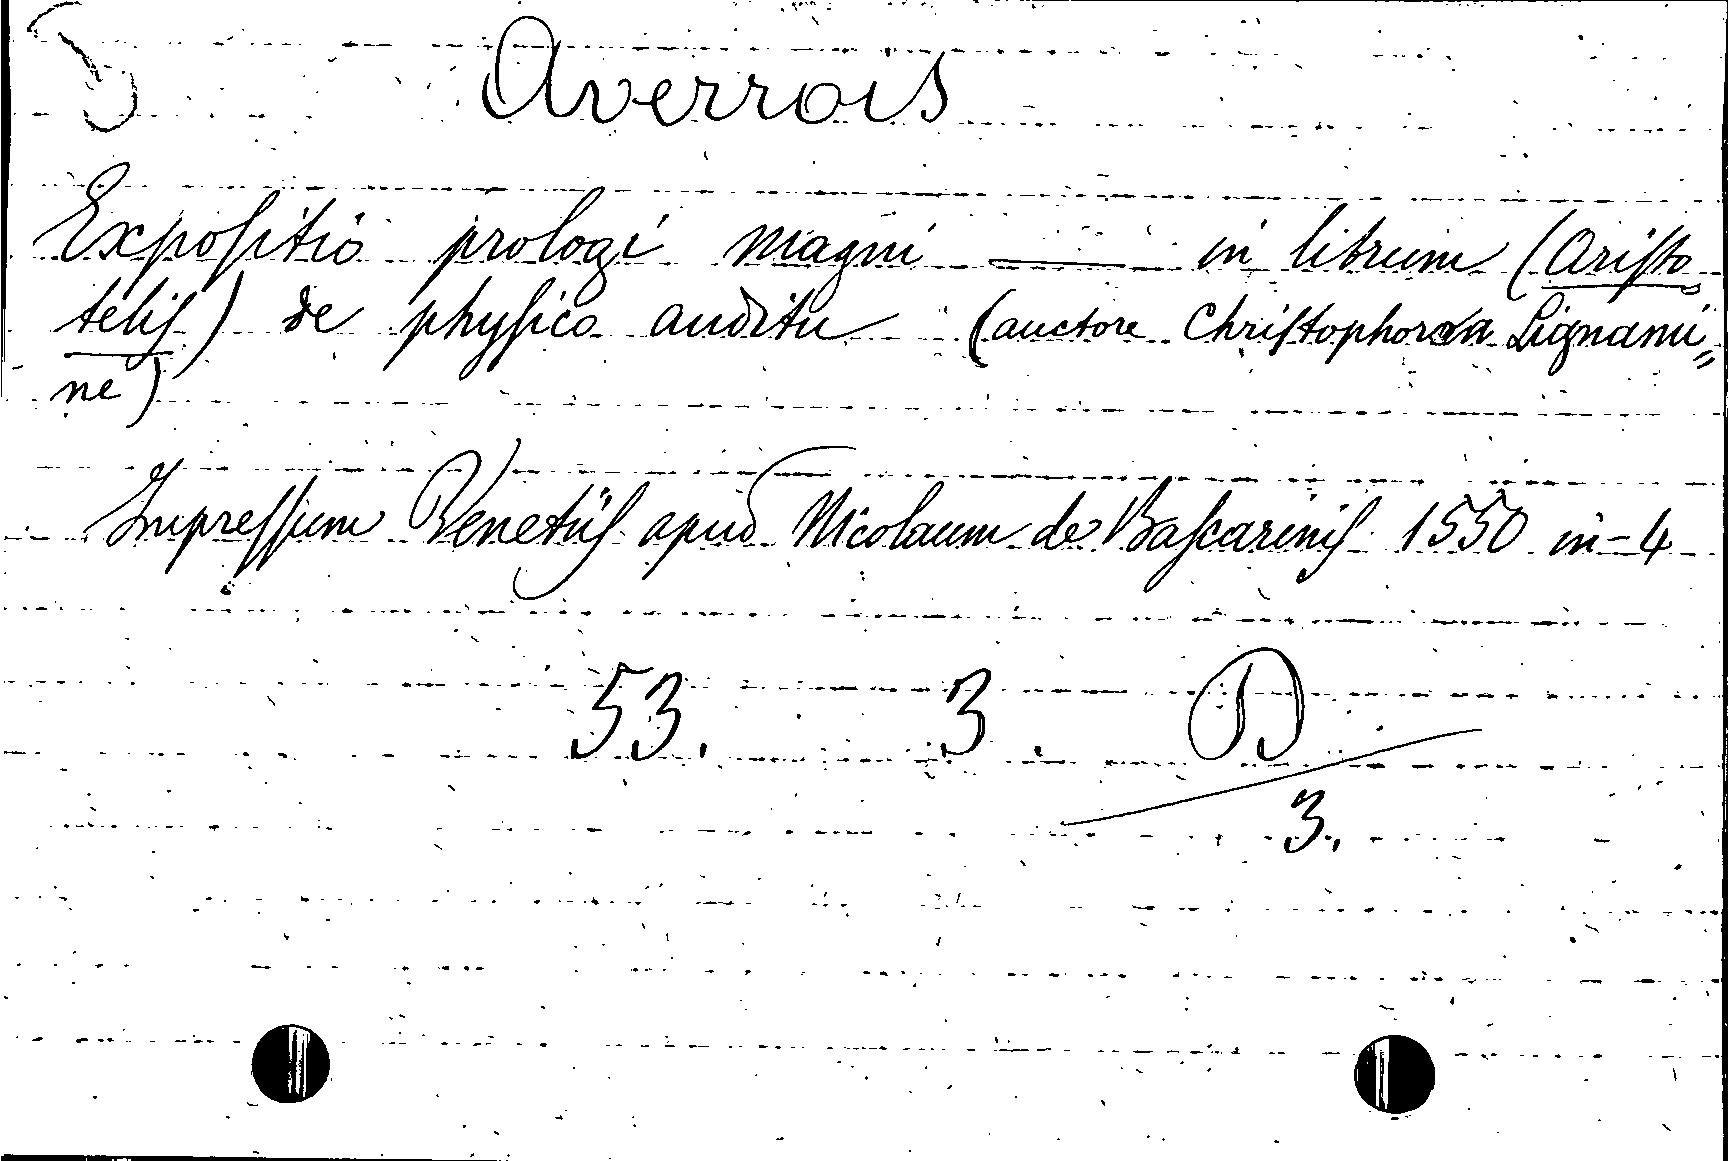 Averrois
Expoſitio prologi magni —— in librum (Ariſto
teliſ) de phyſico auditu (auctore Chriſtophoro a Lignami„
ne)
Impreſſum Venetiiſ apud Nicolaum de Baſcariniſ 1550 in-4
53. 3. D
3.